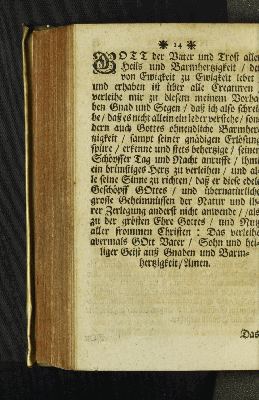 * 14 *
GOTT der Vater und Trost allen
Heils und Barmhertzigkeit / der
von Ewigkeit zu Ewigkeit lebet
und erhaben ist über alle Creaturen /
verleihe mir zu diesem meinem Vorha-
ben Gnad und Segen / daß ich also schrei-
be / daß es nicht allein ein jeder verstehe / son-
dern auch Gottes ohnendliche Barmher-
tzigkeit / sampt seiner gnädigen Erlösung
spüre / erkenne und stets behertzige / seinen
Schöpffer Tag und Nacht anruffe / ihm
ein brünstiges Hertz zu verleihen / und al-
le seine Sinne zu richten / daß er diese edele
Geschöpff GOttes / und übernatürliche
grosse Geheimnüssen der Natur und ih-
rer Zerlegung anderst nicht anwende / als
zu der grösten Ehre Gottes / und Nutz
aller frommen Christen : Das verleihe
abermals GOtt Vater / Sohn und hei-
liger Geist auß Gnaden und Barm-
hertzigkeit / Amen.
Das